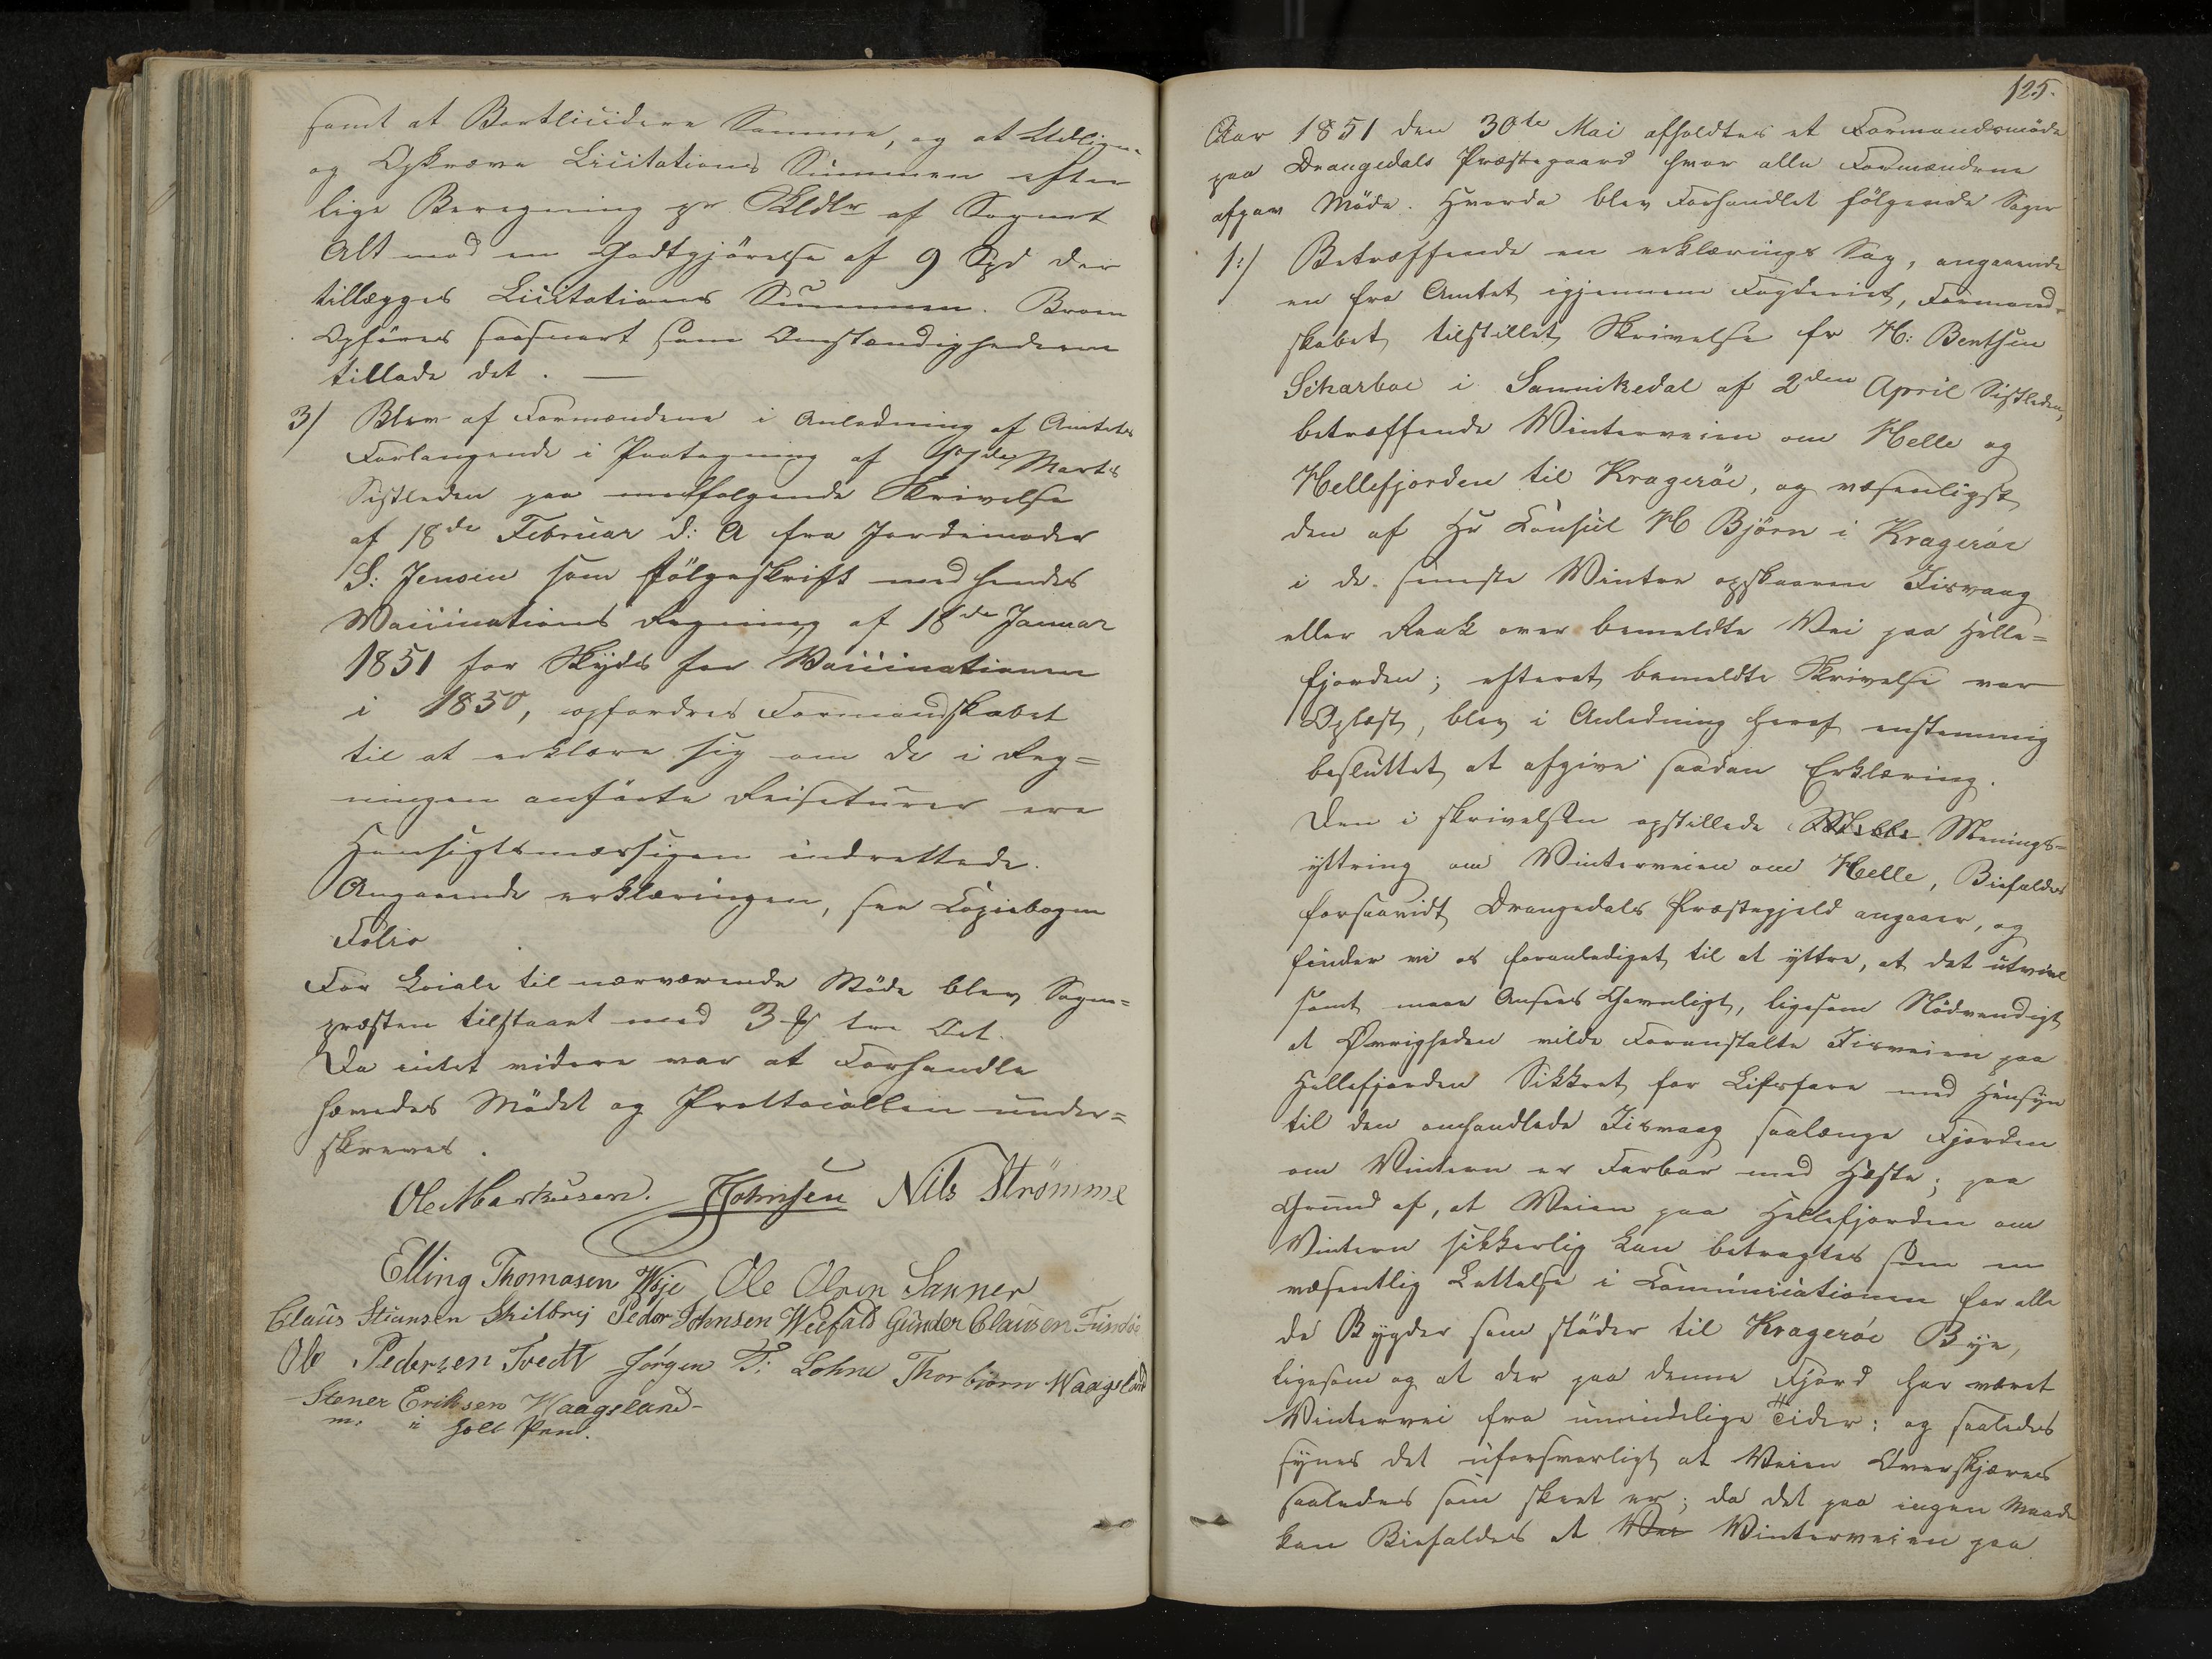 samt at Bortlicidere Samme, og at Udligne
og Opkræve Licitations Summen efter
lige Beregning pr Skldlr af Sognet
Alt med en Godtgjörelse af 9 Spd der
tillægges Licitations Summen. Broen
Opföres saasnart som Omstændighederne
tillade det. —
3/ Blev af Formændene i Anledning af Amtets
Forlangende i Paategning af Marts
Sistleden paa medfølgende Skrivelse
af 18de Februar d: A fra Jordemoder
S: Jensen som følgeskrift med hendes
Vaccinations Regning af 18de Januar
1851 for Skyds for Vaccinationen
i 1850, opfordres Formandskabet
til at erklære sig om de i Reg=
ningen anførte Reiseturer ere
Hensigtsmæssigen indrettede.
Angaaende erklæringen, see Copiebogen
Folio
For Locale til nærværende Möde blev Sogne=
præsten tilstaaet med 3 tre Ort.
Da intet videre var at Forhandle
hævedes Mödet og Prottocollen under=
skreves.
Ole Markusen. JJohnsen Nils Strömme
Elling Thomasen Woje Ole Olsen Sanner
Claus Stiansen Skilbrej Peder Johnsen Weefald Gunder Clausen
Ole Pedersen Tvedt Jörgen T: Lohne Thorbiörn Waagsland
Stener Eriksen Waagsland
m: i hold Pen.
125.
Aar 1851 den 30te Mai afholdtes et Formandsmöde
paa Drangedals Præstegaard hvor alle Formændene
afgav Möde. Hvorda blev Forhandlet fölgende Sager
1:/ Betræffende en erklærings Sag, angaaende
en fra Amtet igjennem Fogderiet, Formand=
skabet tilstillet Skrivelse fr H: Benthsen
Scharboe i Sannikedal af 2den April Sistleden,
betræffende Winterveien om Helle og
Hellefjorden til Kragerøe, og væsenligst
den af Hr Consul H Björn i Kragerøe
i de seneste Vintre opskaaren Iisvaag
eller Raak over bemeldte Vei paa Helle=
fjorden; efterat bemeldte Skrivelse var
Oplæst, blev i Anledning heraf enstemmig
besluttet at afgive saadan Erklæring.
Den i skrivelsen opstillede Menings=
yttring om Winterveien om Helle, Biefaldes
forsaavidt Drangedals Præstegjeld angaaer, og
finder vi os foranlediget til at yttre, at det utvivl
somt maae Ansees Gavnligt, ligesom Nödvendigt
at Øvrigheden vilde Foranstalte Iisveien paa
Hellefjorden Sikkret for Lifsfare med Hensyn
til den omhandlede Iisvaag saalænge Fjorden
om Vintern er Farbar med Heste; paa
Grund af, at Veien paa Hellefjorden om
Vintern sikkerlig kan betragtes som en
væsentlig Lettelse i Communicationen for alle
de Bygder som støder til Kragerøe Bye,
ligesom og at der paa denne Fjord har været
Vintervei fra umindelige Tider; og saaledes
synes det uforsvarligt at Veien Overskjæres
saaledes som skeet er; da det paa ingen Maade
kan Biefaldes at Vei Winterveien paa